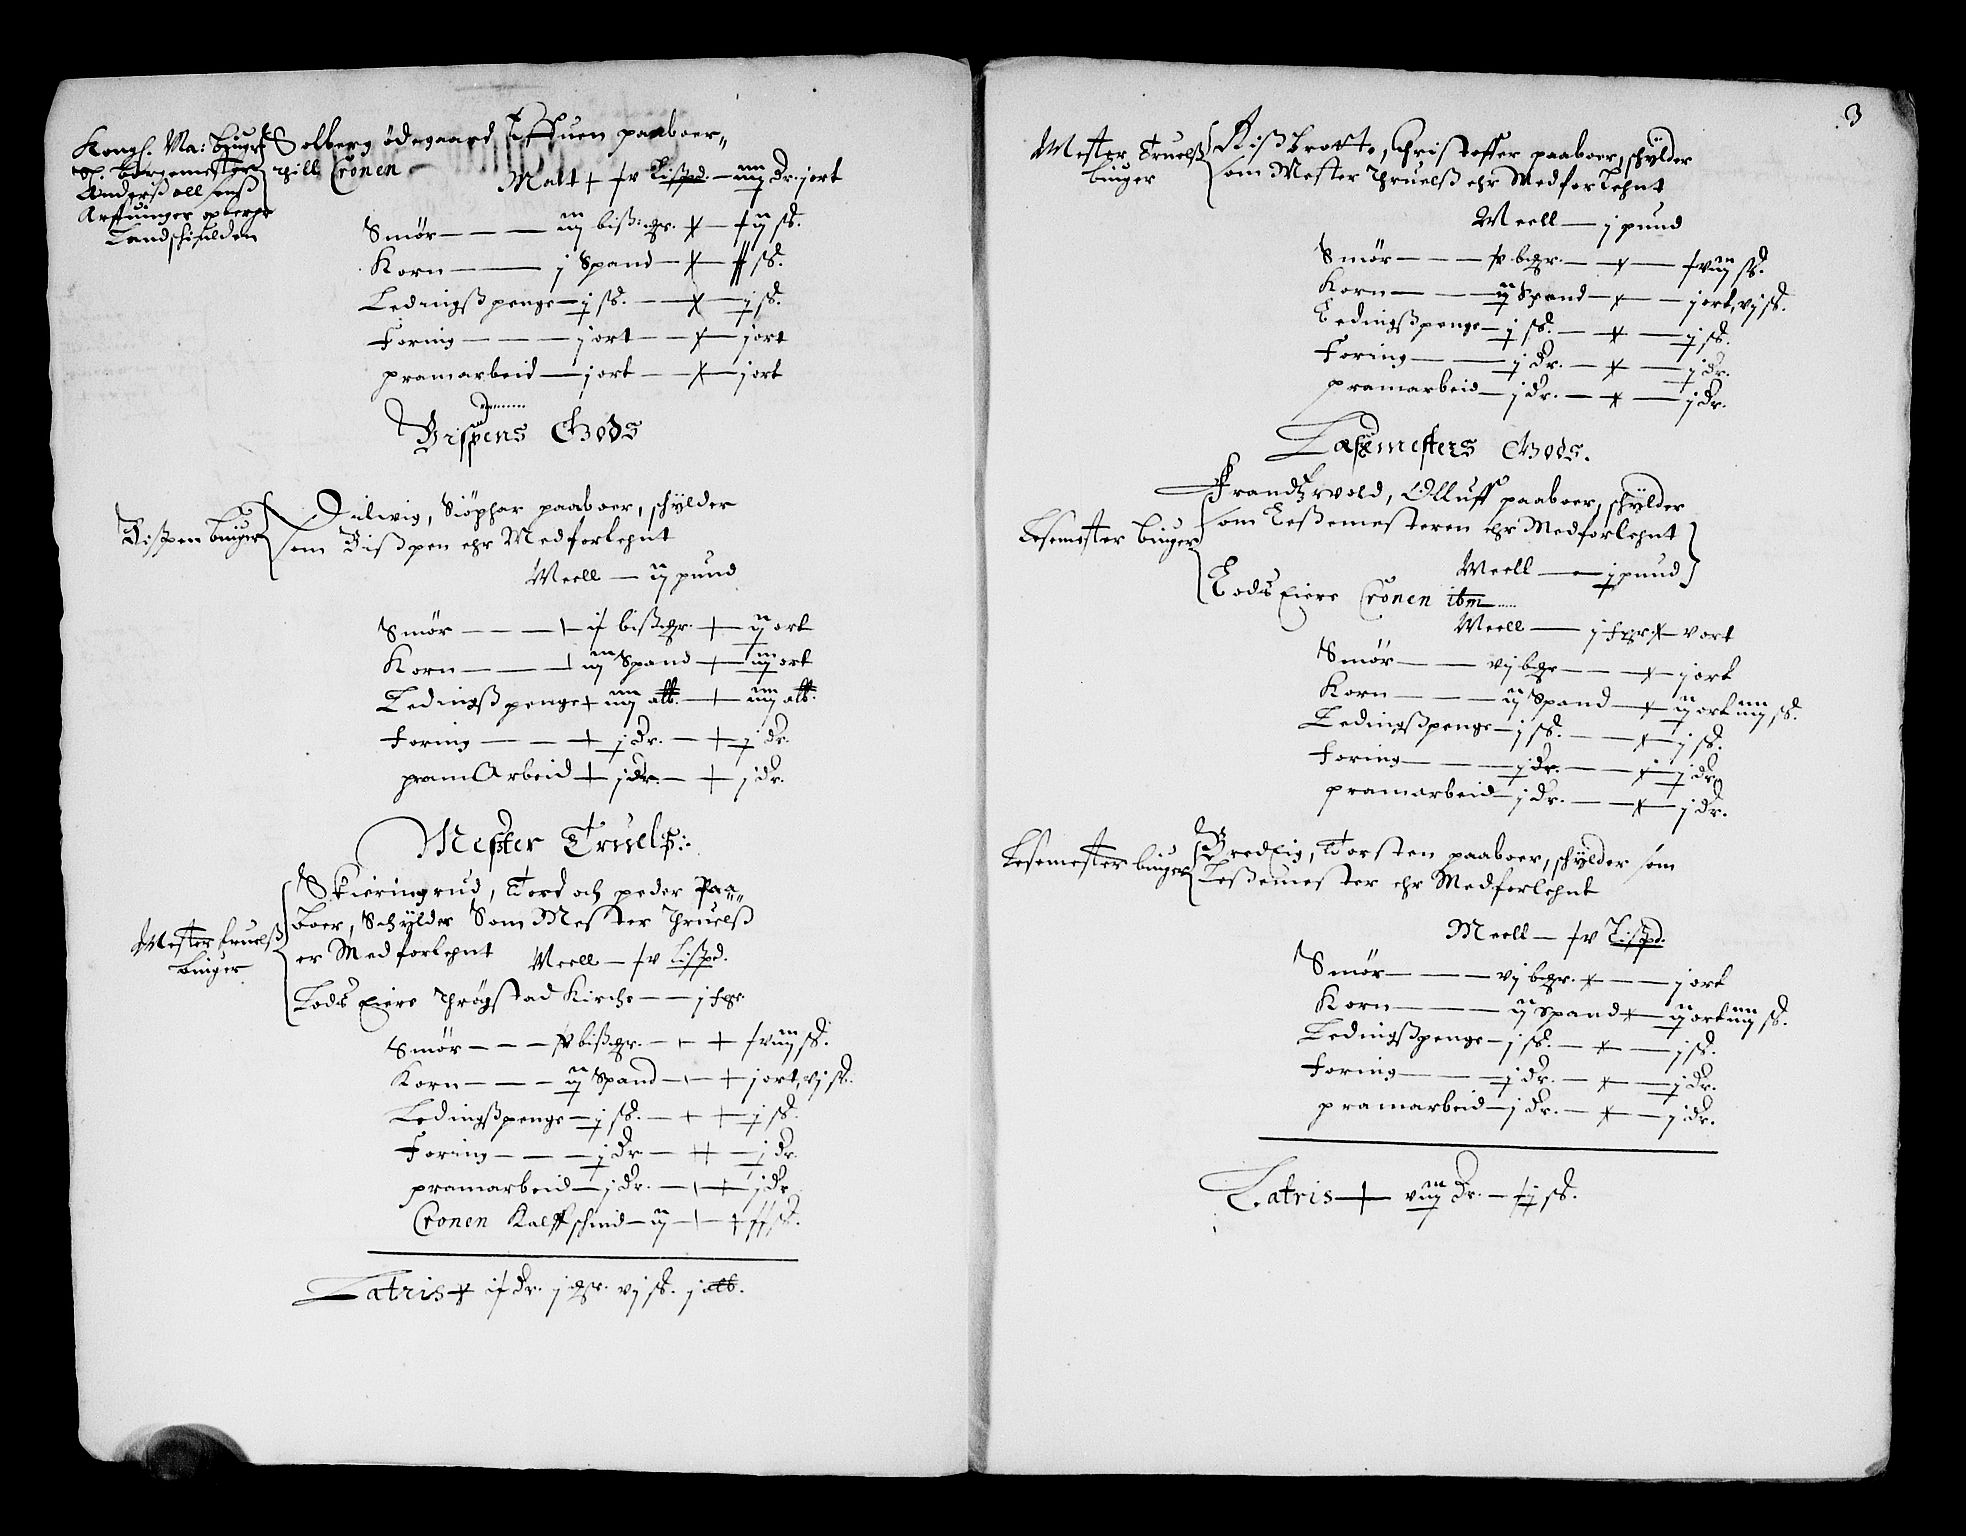 Kongl. Ma: Biugr
Sl. Borgemester
Anderß oll senß
Arffuinger opberge
Landschiulden
Solberg ødegaard Tiffuen paaboer
thill Cronen
Malt + fv Lißpd. — iiij Dr. j ort
Smør — — — iij biß:gr. + — f ij sß.
Korn — — j Spand — + — ff sß.
Ledingßpenge — j sß. — + — j sß.
Foring — — — j ort — + — j ort
pramarbeid — j ort — + — j ort
Bispens Gods
Bißpen biuger
Dilwig, Siöphar paaboer, schylder
som Bißpen ehr Medforlehnt
Meell — ij pund
Smør — — — + if bißgr. — + — ij ort
Korn — — — + iij Spand — + — iij ort
Ledingßpenge + iiij alb. — + — iiij alb.
Foring — — — + j Dr. — + j Dr.
pramArbeid + j Dr. — + — j Dr.
Mester Truelß:
Mester truelß
biuger
Skieringrud, Tord och peder Paa
boer, Schylder Som Mester Thruelß
er Medforlehnt
Meell — fv Lißpd.
Lods Eiere Thrøgstad Kirche — — j fgr.
Smør — — — fv bißgr. — + + fviij sß.
Korn — — — ij Spand — + + j ort, vj sß.
Ledingßpenge — j sß. — + + j sß.
Foring — — — j Dr — + — j Dr.
pramarbeid — j Dr. — + — j Dr
Cronen Kalffschind — ij — + + ff sß.
Latris + if Dr. j gr. vj sß. j alb.
3
Mester Truelß
biuger
Rißbrotte, Christoffer paaboer, schylder
som Mester Thruelß ehr Medforlehnt
Meell — j pund
Smør — — — fv bgr. — + — fviij sß.
Korn — — — ij Spand — + — j ort, vj sß.
Ledingßpenge — j sß. — + — j sß.
Foring — — — j Dr. — + — j Dr.
pramarbeid — j Dr. — + — j Dr.
Læsemesters Gods.
Lesemester biuger
Frandtzvold, Olluff paaboer, schylder
som Leßemesteren ehr Medforlehnt
Meell — — j pund
Lods Eiere Cronen ibm
Meell — j fgr + v ort
Smør — — vj bgr — — + — j ort
Korn — — — ij Spand — + — ij ort iiij sß.
Ledingßpenge — j sß. — — + — j sß.
Foring — — — j Dr. — — + — j Dr
pramarbeid — j Dr. — — + — j Dr.
Lesemester biuger
Bredlig, Torsten paaboer, schylder som
Leßemester ehr Medforlehnt
Meell — fv Lißpd.
Smør — — — vj bgr. + — — j ort
Korn — — — ij Spand + — ij ort iiij sß.
Ledingßpenge — j sß. — + — j sß.
Foring — — — j Dr. — + — j Dr.
pramarbeid — j Dr. — + — j Dr.
Latris — + — viij Dr. — fij sß.